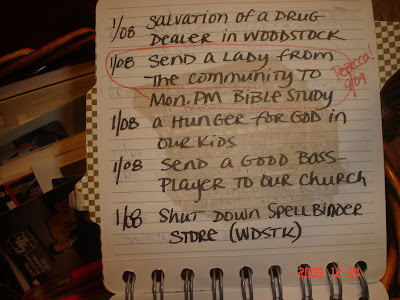 1/08 Salvation of a Drug
Dealer in Woodstock
1/08 Send a Lady from
The community to
Mon. PM Bible Study
Rebecca!
9/09
1/08 a Hunger for God in
our Kids
1/08 Send a Good Bass-
Player to our Church
1/08 Shut Down Spellbinder
Store (WDSTK)